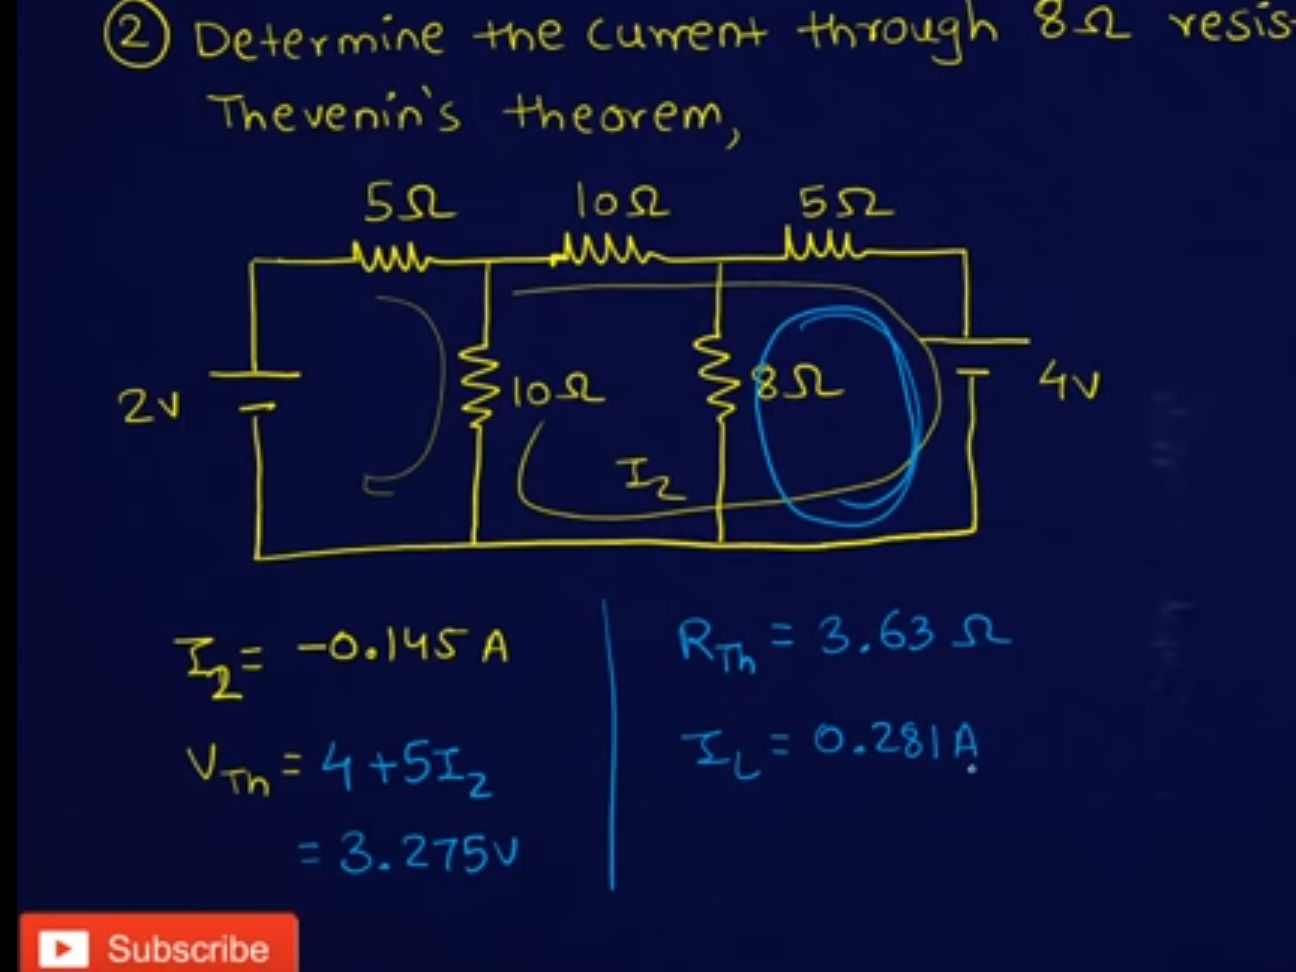 ② Determine the current through 8Ω resis
Thevenin's theorem,
5Ω 10Ω 5Ω
2v 10Ω 8Ω 4v
I₂
I₂ = -0.145 A
V_Th = 4 + 5I₂
= 3.275v
R_Th = 3.63 Ω
I_L = 0.281A
Subscribe